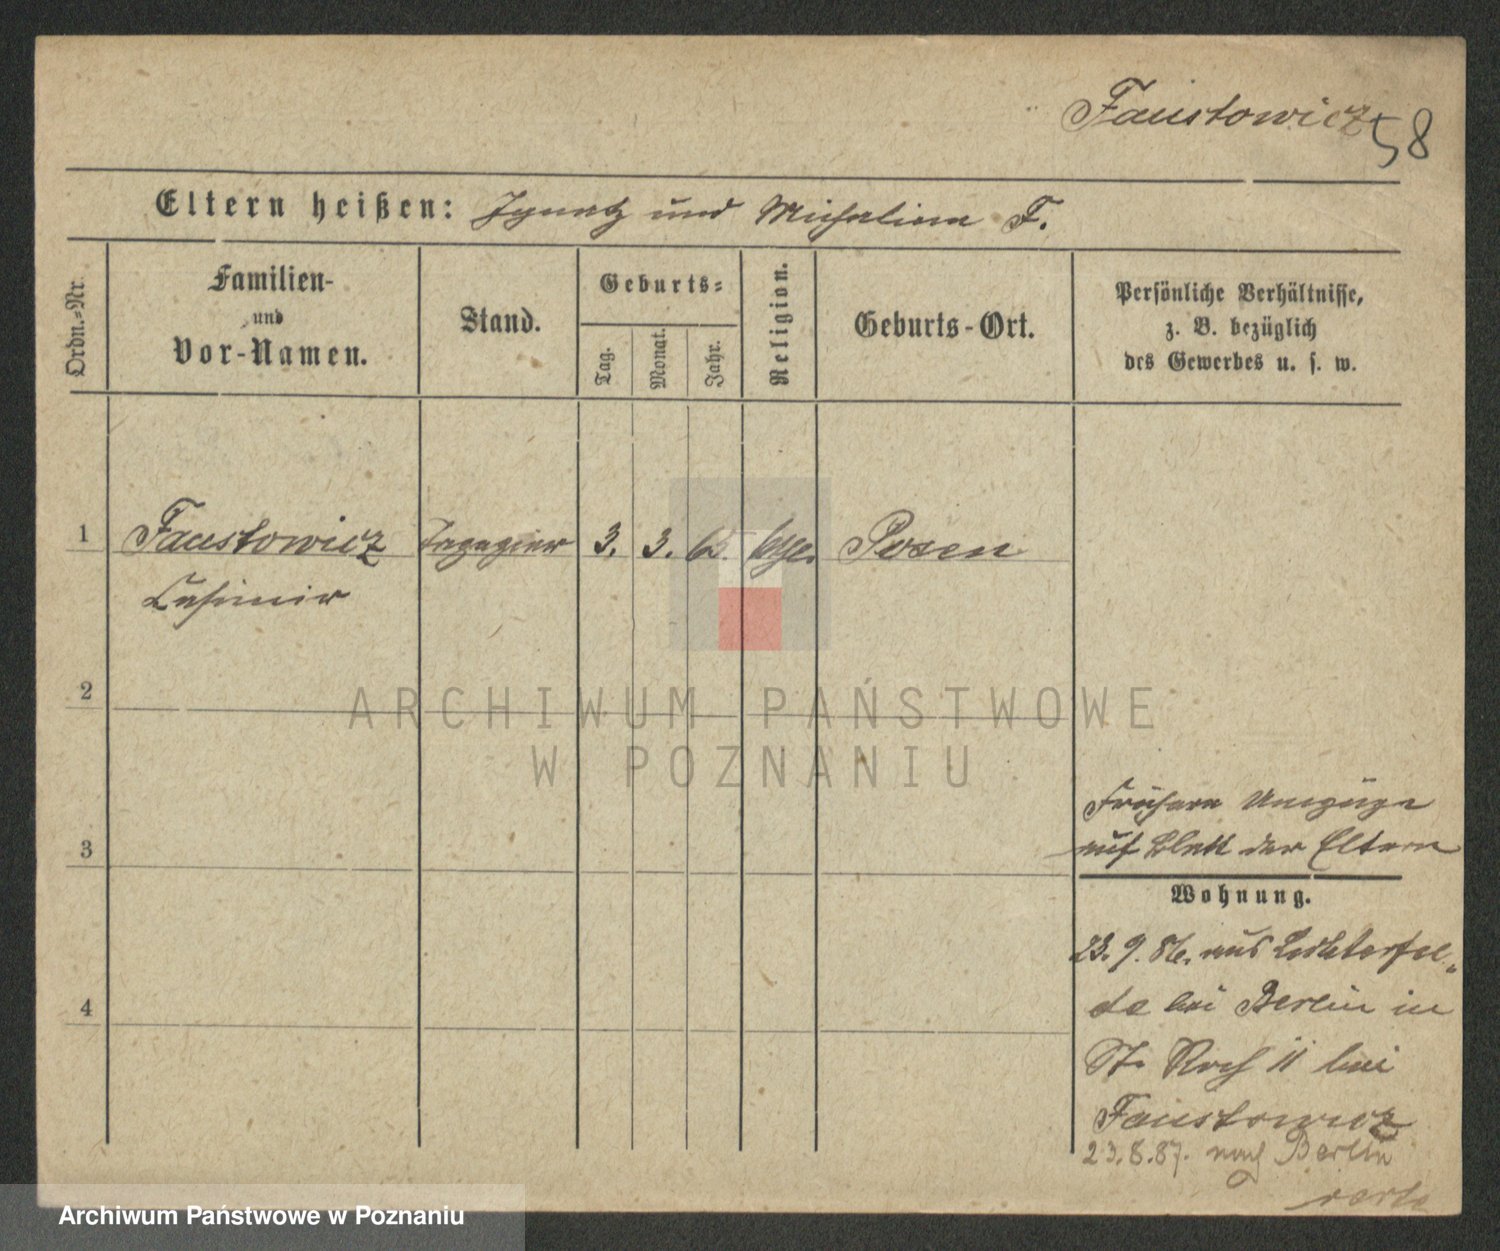 Faustowicz 58
Eltern heißen: Ignatz und Michalina F.
Ordn.-Nr.
Familien-
und
Vor-Namen.
Stand.
Geburts-
Tag.
Monat.
Jahr.
Religion.
Geburts-Ort.
Persönliche Verhältnisse,
z. B. bezüglich
des Gewerbes u. s. w.
1 Faustowicz 3. 3. Posen
Casimir
2
ARCHIWUM PAŃSTWOWE
W POZNANIU
3
4
Frühere Umzüge
auf Blatt der Eltern
Wohnung.
23. 9. 86. aus Lichterfel„
de bei Berlin in
St. Roch 11 bei
Faustowicz
23.8.87. nach Berlin
Archiwum Państwowe w Poznaniu